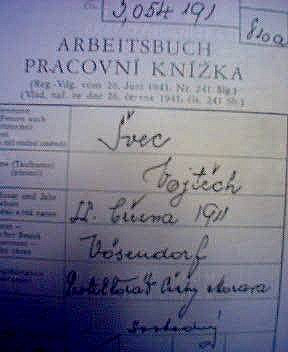 3,054 191
810a
ARBEITSBUCH
PRACOVNÍ KNÍŽKA
(Reg.-Vdg. vom 26. Juni 1941, Nr. 241 Slg.)
(Vlád. nař. ze dne 26. června 1941, čís. 241 Sb.)
Švec
Vojtěch
22. Června 1911
Vösendorf
Protektorát Čechy Morava
svobodný